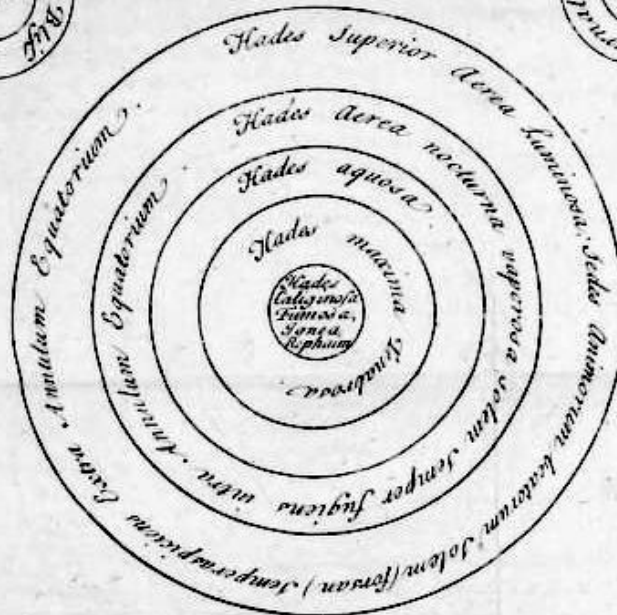 Hades Superior Aerea Luminosa. Sedes Animorum beatorum Solem (forsan) Semper aspiciens Extra Annulum Equatorium.
Hades Aerea nocturna vaporosa Solem Semper fugiens intra Annulum Equatorium
Hades aquosa.
Hades maxima Tenebrosa.
Hades
Caliginosa
Fumosa,
Ignea,
Rephaim